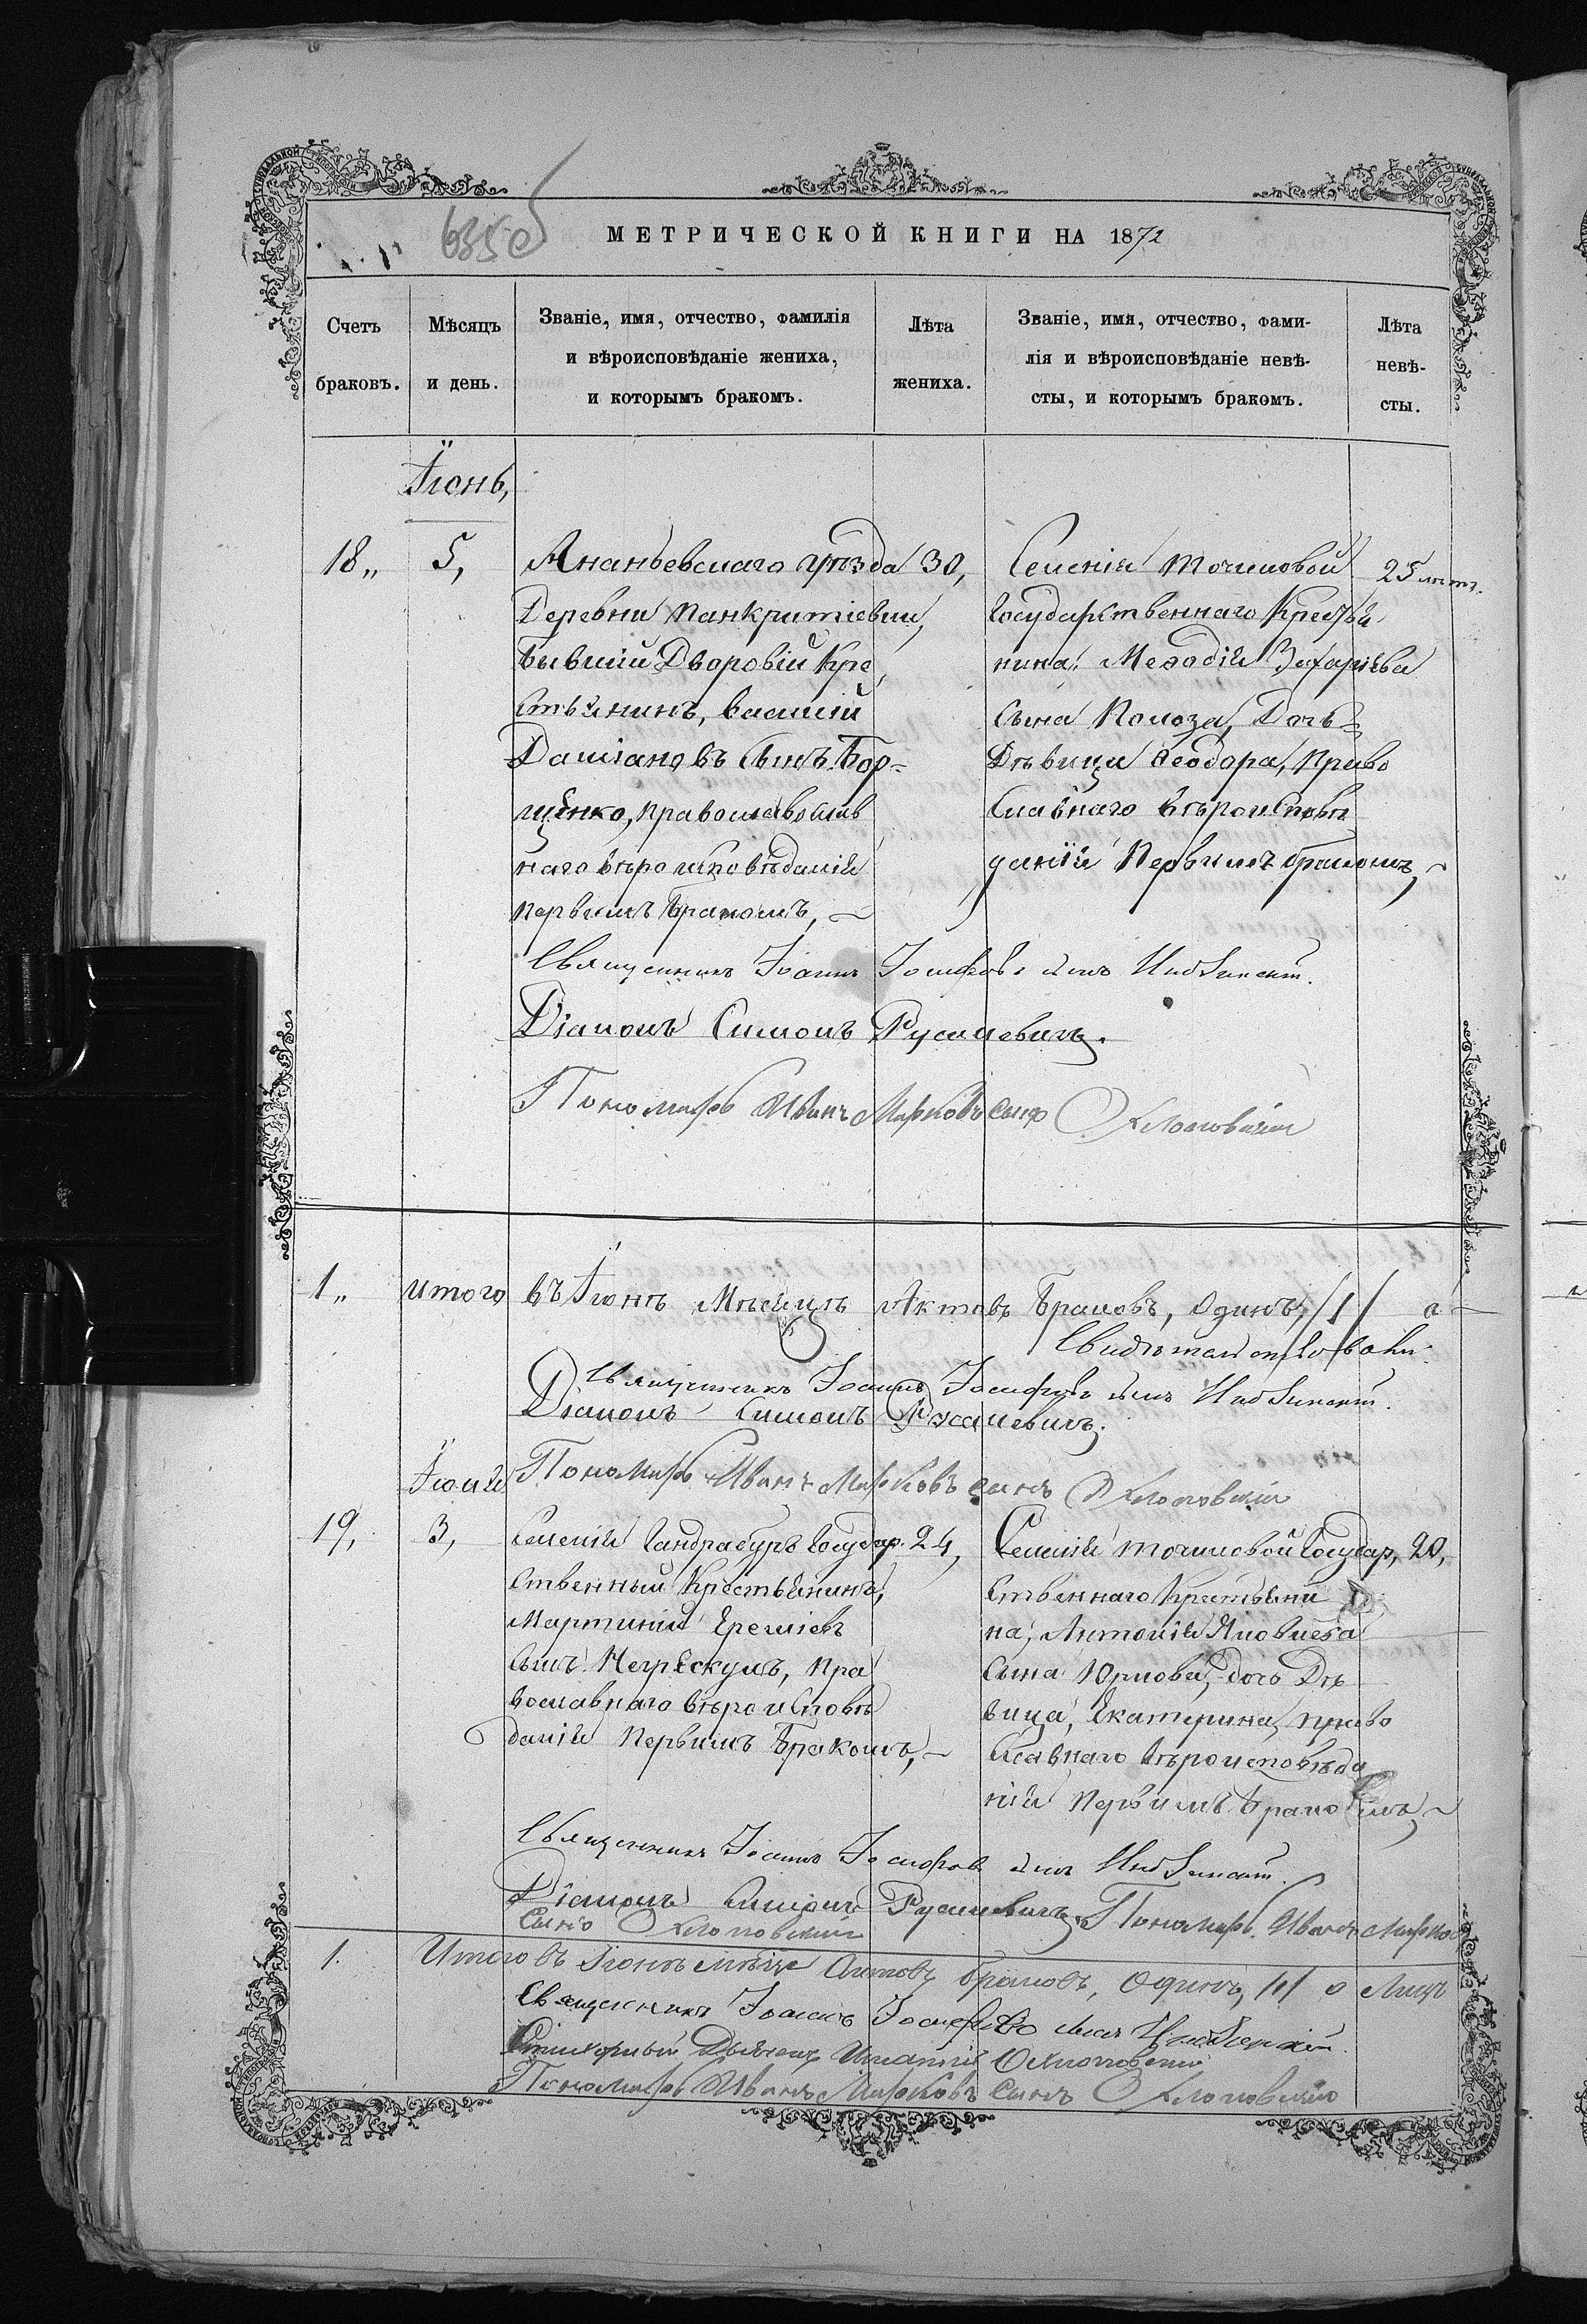 635 об
МЕТРИЧЕСКОЙ КНИГИ НА 1872
Счетъ браковъ.
Мѣсяцъ и день.
Званіе, имя, отчество, фамилія
и вѣроисповѣданіе жениха,
и которымъ бракомъ.
Лѣта жениха.
Званіе, имя, отчество, фами-
лія и вѣроисповѣданіе невѣ-
сты, и которымъ бракомъ.
Лѣта невѣ-
сты.
Іюнь,
18,, 5,
Ананьевскаго уѣзда
Деревни Панкритіевки,
бывшій Дворовій Кре
стьянинъ, Василій
Даміановъ сынъ Бор-
щенко, православослав
наго вѣроисповѣданія
первымъ бракомъ,
30,
Селенія Точиловой
Государственнаго Крестья
нина, Меѳодія Захаріева
сына Полоза, Дочь
Дѣвица Ѳеодора, Право
славнаго вѣроисповѣ
данія Первымъ бракомъ,
25 лѣтъ.
Священникъ Іоаннъ Іосифовъ сынъ
Діаконъ Симонъ Русалевичъ.
Пономарь Иванъ Марковъ сынъ Хлоповскій
1,, Итого въ Іюнѣ Мѣсяцѣ Актовъ Браковъ, Одинъ, /1/ а
Свидѣтельствовали
Священникъ Іоаннъ Іосифовъ сынъ
Діаконъ Симонъ Русалевичъ.
Пономарь Иванъ Марковъ сынъ Хлоповскій
Іюля
19, 3,
Селенія Гандрабуръ Государ.
ственный Крестьянинъ,
Мартиній Ереміевъ
сынъ Негрескулъ, Пра
вославнаго вѣроисповѣ
данія Первымъ Бракомъ,
24,
Селенія Точиловой Государ,
ственнаго Крестьяни
на, Антонія Яковлева
сына Юрлова, дочь Дѣ
вица, Екатерина, право
славнаго вѣроисповѣда
нія Первымъ Бракомъ
20,
Священникъ Іоаннъ Іосифовъ сынъ
Діаконъ Симонъ Русалевичъ. Пономарь Иванъ Марковъ
сынъ Хлоповскій
1. Итого въ Іюнѣ мѣсяце Актовъ браковъ, Одинъ, /1/ о Лицъ
Священникъ Іоаннъ Іосифовъ сынъ
Пономарь Иванъ Марковъ сынъ Хлоповскій